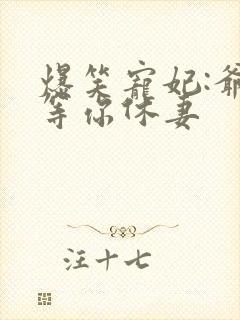 爆笑宠妃:爷
等你休妻
汪十七